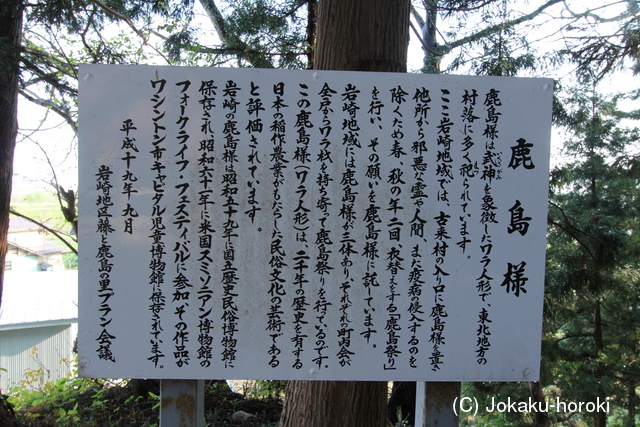 鹿島様
鹿島様は武神を象徴したワラ人形で、東北地方の
村落に多く祀られています。
ここ岩崎地域では、古来村の入り口に鹿島様を置き
他所から邪悪な霊や人間、また疫病の侵入するのを
除くため春、秋の年二回、衣替えをする「鹿島祭り」
を行い、その願いを鹿島様に託しています。
岩崎地域には鹿島様が三体あり、それぞれの町内会が
全戸からワラ束を持ち寄って鹿島祭りを行っているのです。
この鹿島様(ワラ人形)は、二千年の歴史を有する
日本の稲作農業がもたらした民俗文化の芸術である
と評価されています。
岩崎の鹿島様は昭和五十九年に国立歴史民俗博物館に
保存され、昭和六十一年に米国スミソニアン博物館の
フォークライフ・フェスティバルに参加、その作品が
ワシントン市キャピタル児童博物館に保存されています。
平成十九年九月
岩崎地区藤と鹿島の里プラン会議
(C) Jokaku-horoki